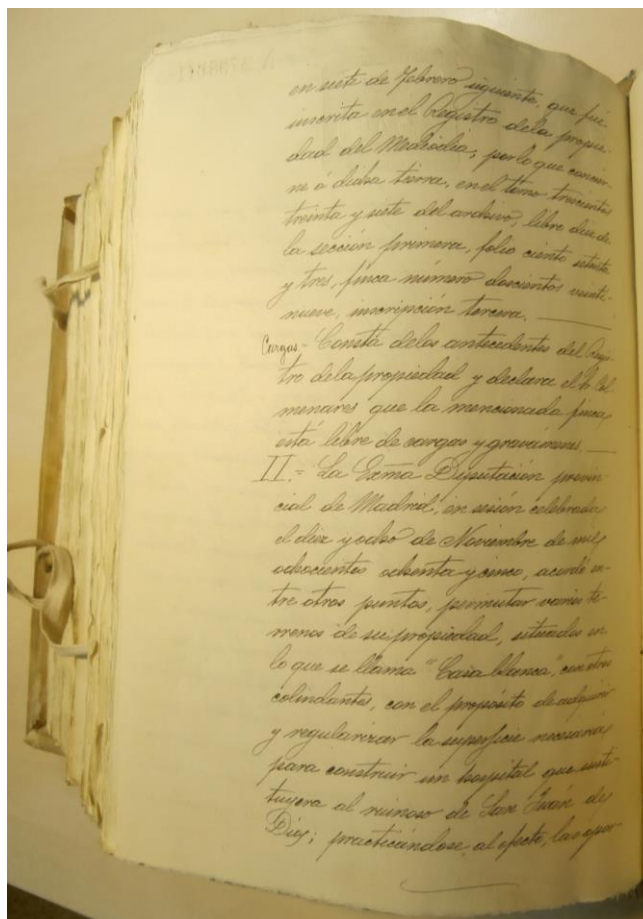 en siete de febrero siguiente, que fué
inscrita en el Registro dela propie
dad del Mediodia, por lo que concier
ne á dicha tierra, en el tomo trescientos
treinta y siete del archivo, libro diez de
la sección primera, folio ciento setenta
y tres, finca número doscientos veinti-
nueve, inscripción tercera.
Cargas.- Consta delos antecedentes del Regis
tro dela propiedad y declara el Sr. Col
menares que la mencionada finca
está libre de cargas y gravámenes.
II.= La Exma Diputación provin
cial de Madrid, en sesión celebrada
el diez y ocho de Noviembre de mil
ochocientos ochenta y cinco, acordó en-
tre otros puntos, permutar varios te-
rrenos de su propiedad, situados en
lo que se llama "Casa blanca", con otros
colindantes, con el propósito de adquirir
y regularizar la superficie necesaria
para construir un hospital que susti-
tuyera al ruinoso de San Juán de
Dios; practicándose, al efecto, las oper